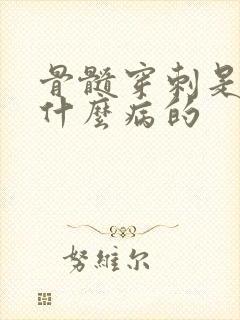 骨髓穿刺是
什麼病的
努維尔